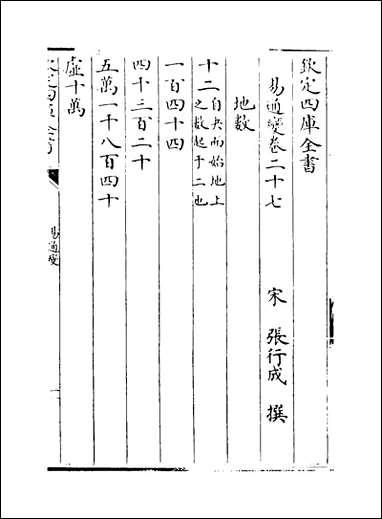 欽定四庫全書
易通變卷二十七
宋 張行成 撰
地數
十二自夬而始地上之數起于二也
一百四十四
四十三百二十
五萬一千八百四十
虛十萬
易通變
一